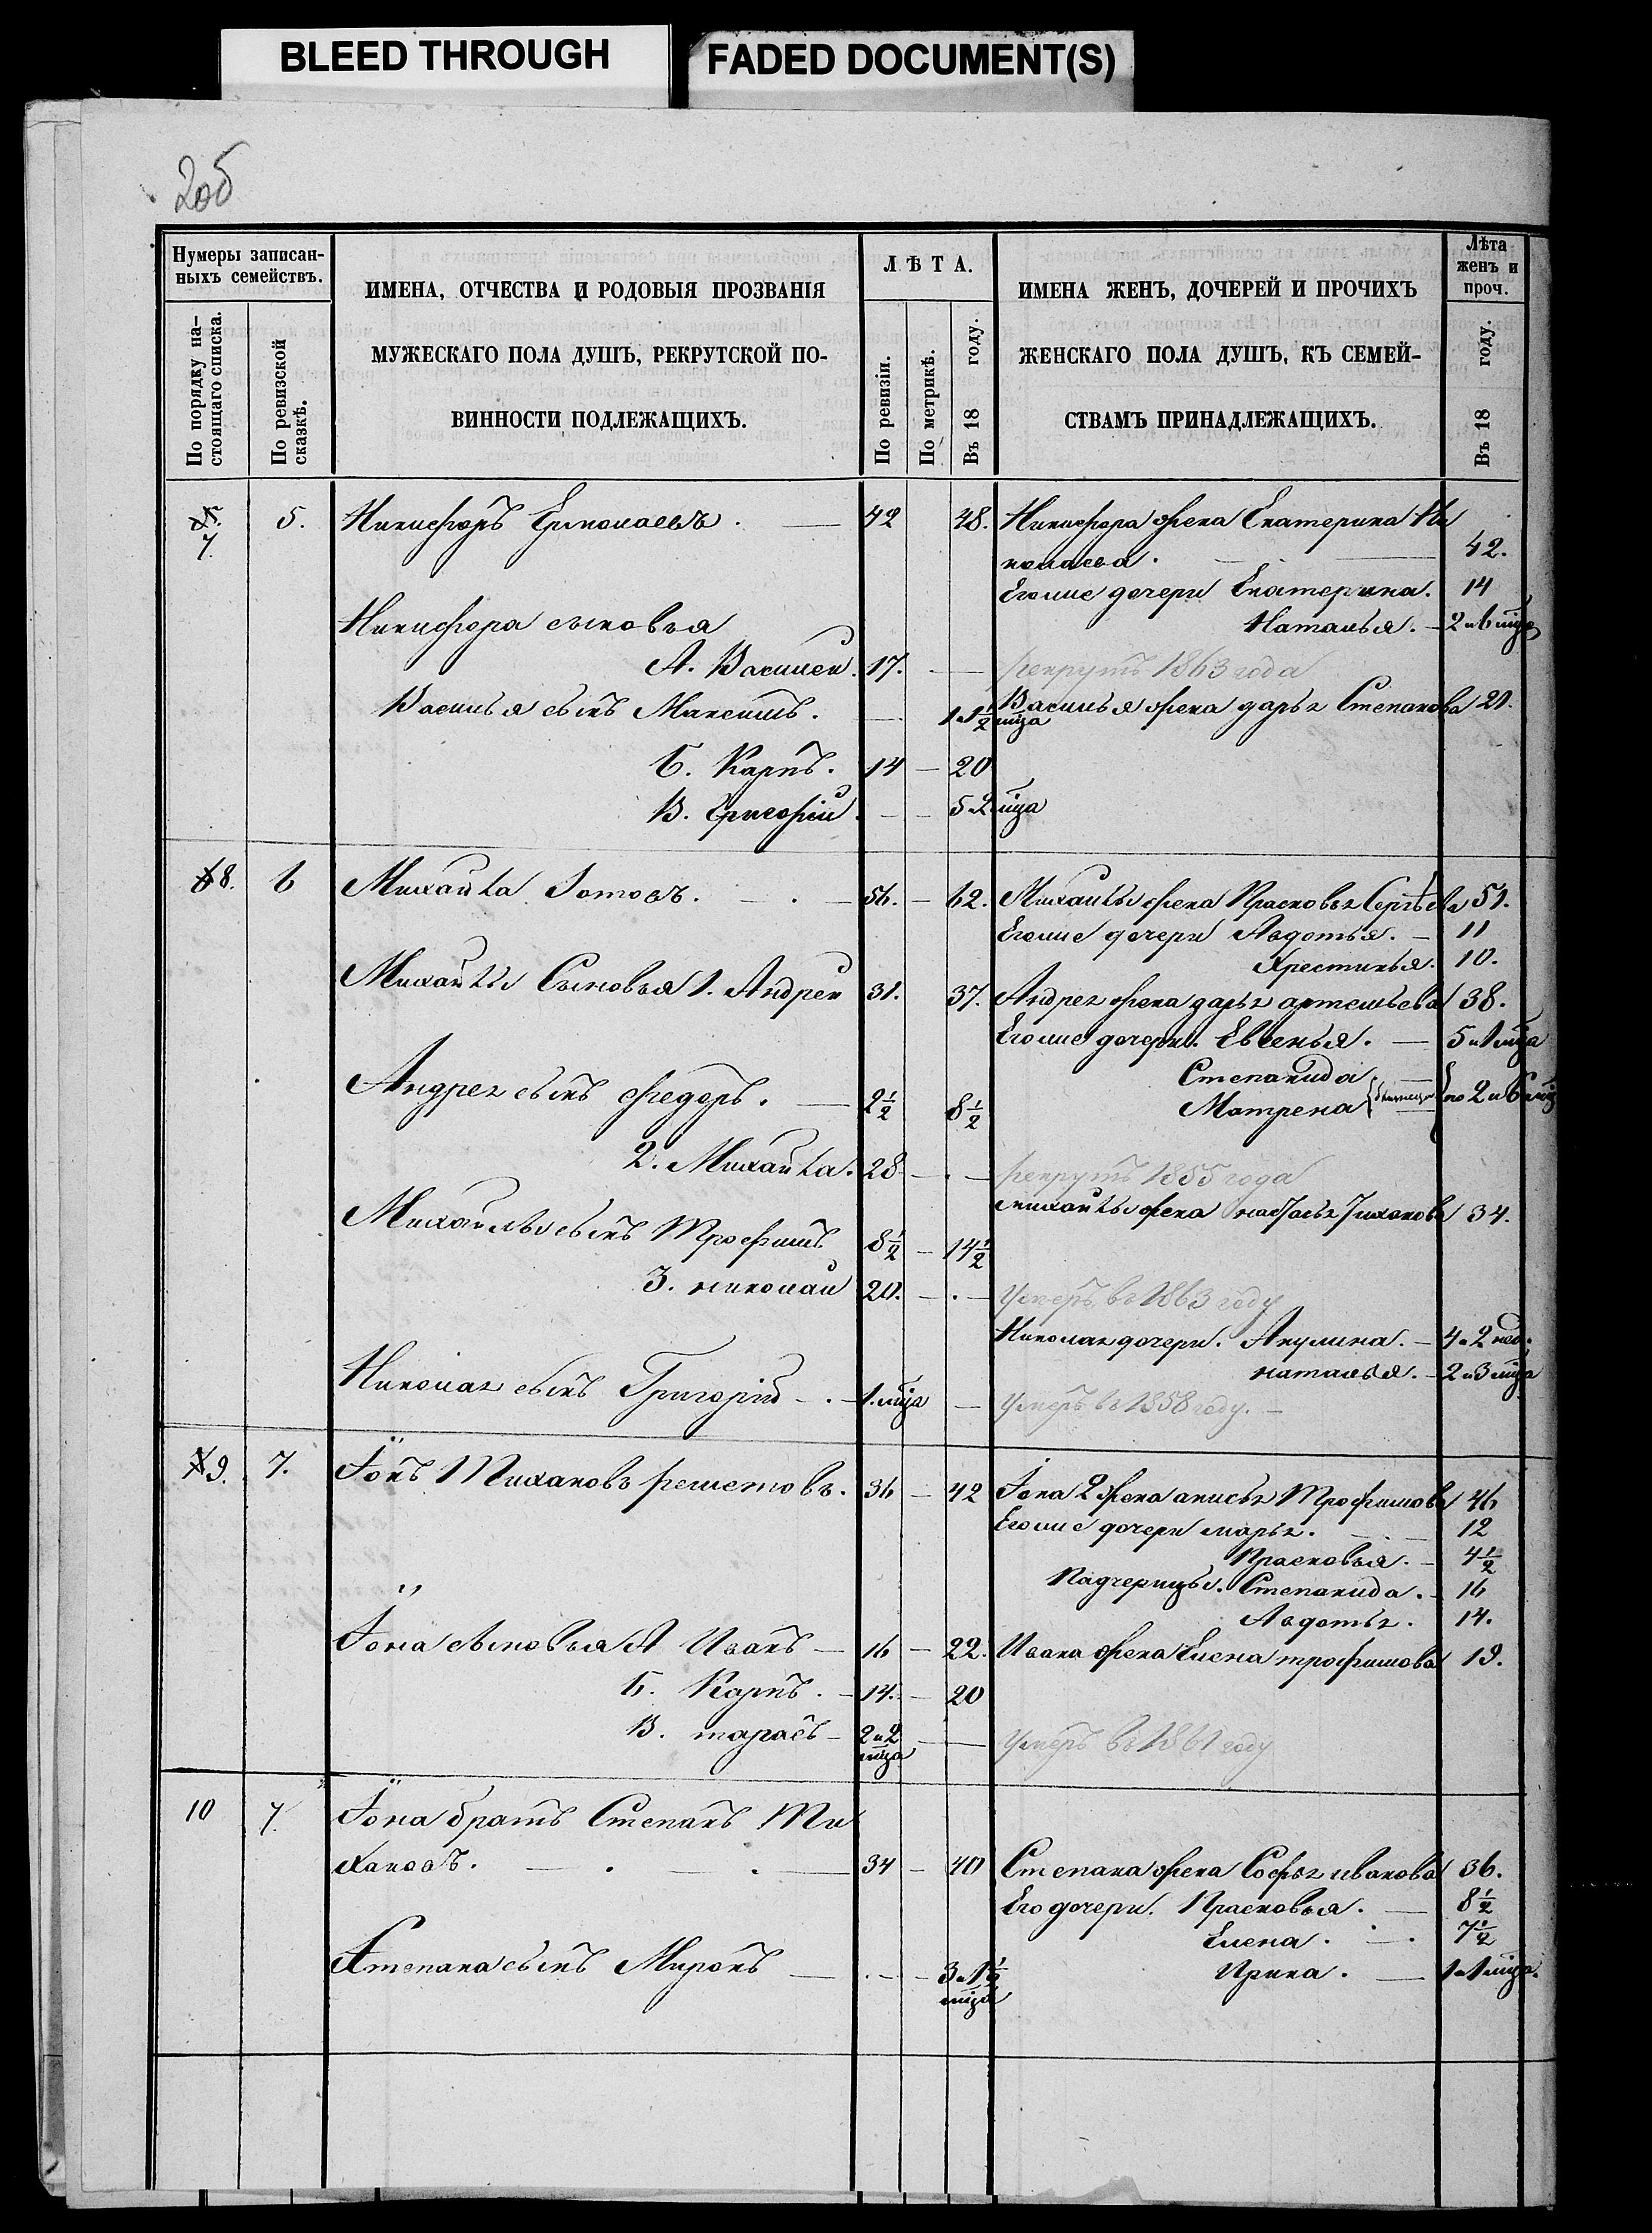 BLEED THROUGH
FADED DOCUMENT(S)
206
Нумеры записан-
ныхъ семействъ.
По порядку на-
стоящаго списка.
По ревизской
сказкѣ.
ИМЕНА, ОТЧЕСТВА И РОДОВЫЯ ПРОЗВАНІЯ
МУЖЕСКАГО ПОЛА ДУШЪ, РЕКРУТСКОЙ ПО-
ВИННОСТИ ПОДЛЕЖАЩИХЪ.
ЛѢТА.
По ревизіи.
По метрикѣ.
Въ 18 году.
ИМЕНА ЖЕНЪ, ДОЧЕРЕЙ И ПРОЧИХЪ
ЖЕНСКАГО ПОЛА ДУШЪ, КЪ СЕМЕЙ-
СТВАМЪ ПРИНАДЛЕЖАЩИХЪ.
Лѣта
женъ и
проч.
Въ 18 году.
7. 5. Никифоръ 42 48. Никифора жена Екатерина Ни
колаева. 42.
Егоже дочери Екатерина. 14
Никифора сыновья Наталья. 2 и 6 мцовъ
А. Василей. 17. рекрутъ 1863 года
Василья сынъ Максимъ. 1 и 1½ мца Василья жена дарья Степанова 20.
Б. Карпъ. 14 20
В. Григорій. 5 и 2 мца
8. 6 Михайла Зотовъ. 56. 62. Михайлы жена Прасковья Сергѣева 51.
Егоже дочери Авдотья. 11
Хрестинья. 10.
Михайлы Сыновья 1. Андрей 31. 37. Андрея жена дарья артемьева 38.
Егоже дочери. Евгенья. 5 и 1 мца
Степанида
Андрея сынъ Федоръ. 2½ 8½ Матрена по 2 и 6 мцовъ
2. Михайла. 28 рекрутъ 1855 года
михайлы жена настасья Тиханова 34.
Михайлы сынъ Трофимъ 8½ 14½
3. николай 20. умеръ въ 1863 году
Николая дочери. Акулина. 4 и 2 нед.
наталья. 2 и 3 мца
Николая сынъ Григорій 1. мца умеръ въ 1858 году.
9. 7. Іонъ Тихановъ решетовъ. 36 42 Іона 2 жена анисья Трофимова 46
Егоже дочери марья. 12
Прасковья. 4½
Падчерицы. Степанида. 16
Авдотья. 14.
Іона сыновья А Иванъ 16 22. Ивана жена Елена трофимова 19.
Б. Карпъ. 14. 20
В. тарасъ 2 и 2 мца умеръ въ 1861 году
10 7. Іона братъ Степанъ Ти
хановъ. 34 40 Степана жена Софья иванова 36.
Его дочери. Прасковья. 8½
Елена. 7½
Степана сынъ Миронъ 3 и 1½ мца Ирина. 1 и 1 мца.